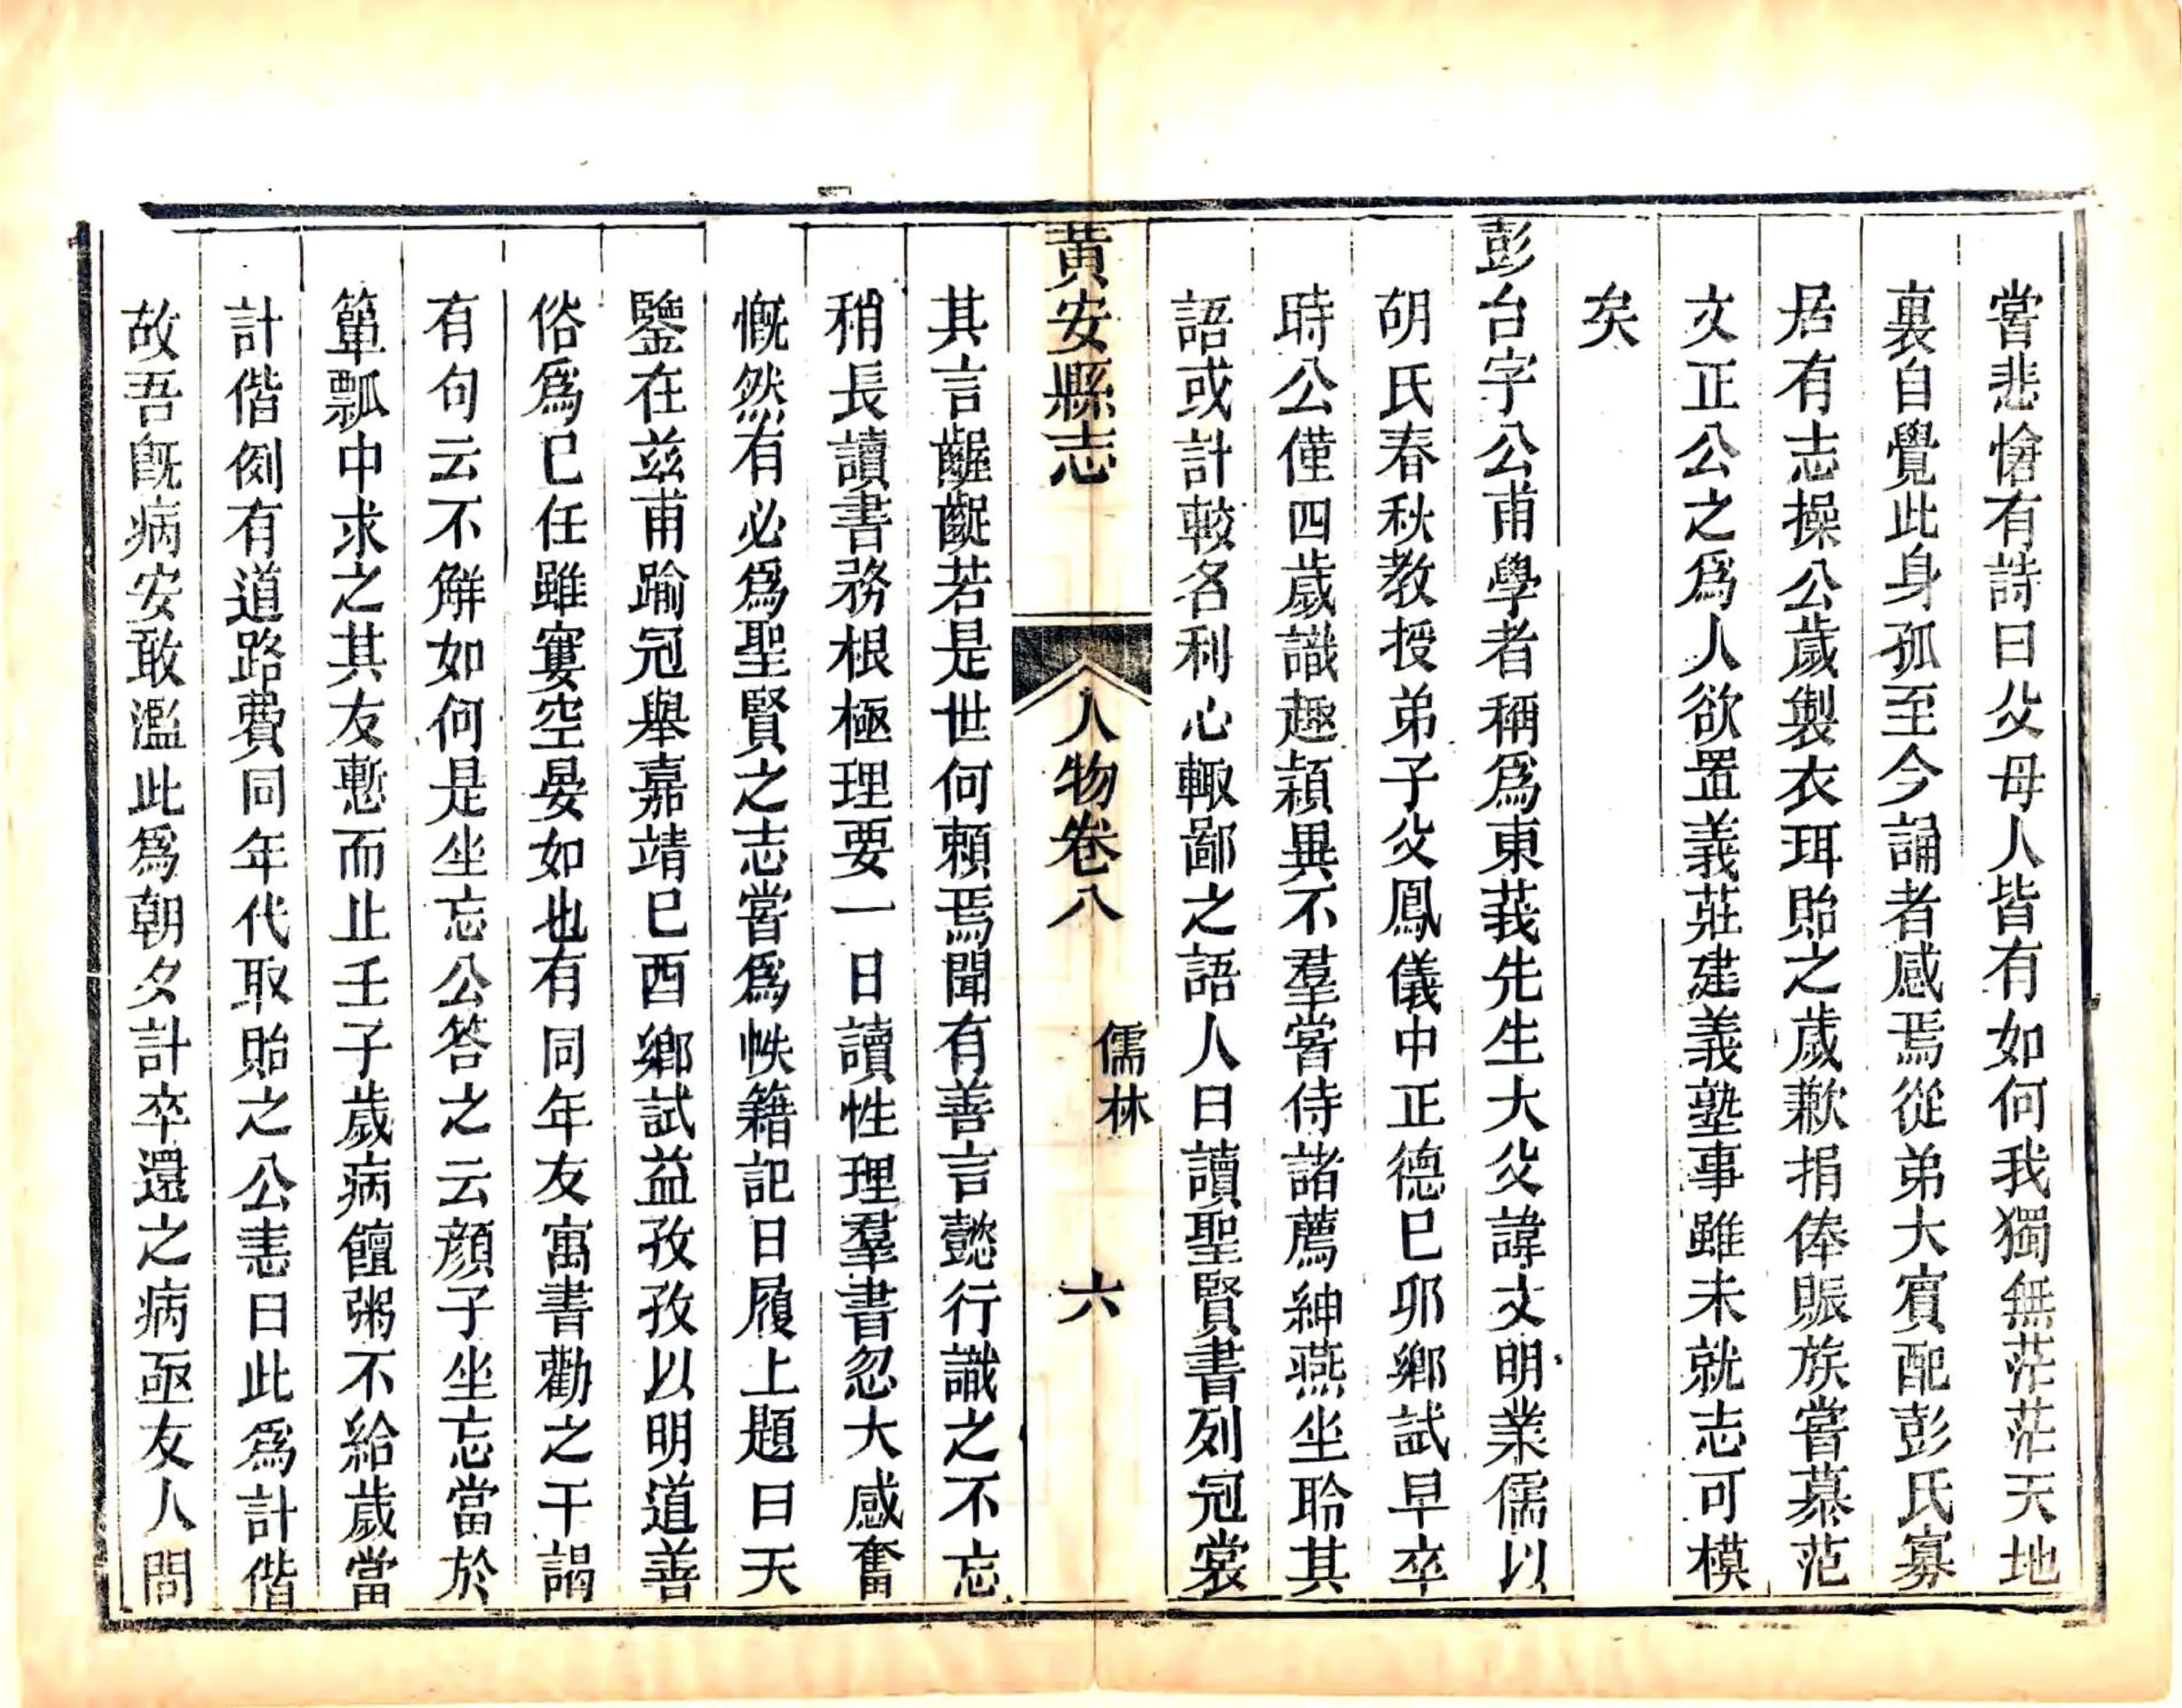 嘗悲愴有詩曰父母人皆有如何我獨無茫茫天地
裏自覺此身孤至今誦者感焉從弟大賓配彭氏寡
居有志操公歲製衣珥貽之歲歉捐俸賑族嘗慕范
文正公之爲人欲置義莊建義塾事雖未就志可模
矣
彭台字公甫學者稱爲東莪先生大父諱文明業儒以
胡氏春秋教授弟子父鳳儀中正德巳卯鄉試早卒
時公僅四歲識趣穎異不羣嘗侍諸薦紳燕坐聆其
語或計較名利心輙鄙之語人曰讀聖賢書列冠裳
黃安縣志
人物卷八
儒林
六
其言齷齪若是世何賴焉聞有善言懿行識之不忘
稍長讀書務根極理要一日讀性理羣書忽大感奮
慨然有必爲聖賢之志嘗爲帙籍記日履上題曰天
鑒在兹甫踰冠舉嘉靖巳酉鄉試益孜孜以明道善
俗爲巳任雖寠空晏如也有同年友寓書勸之干謁
有句云不解如何是坐忘公答之云顏子坐忘當於
簞瓢中求之其友慙而止壬子歲病饘粥不給歲當
計偕例有道路費同年代取貽之公恚曰此爲計偕
故吾旣病安敢濫此爲朝夕計卒還之病亟友人問